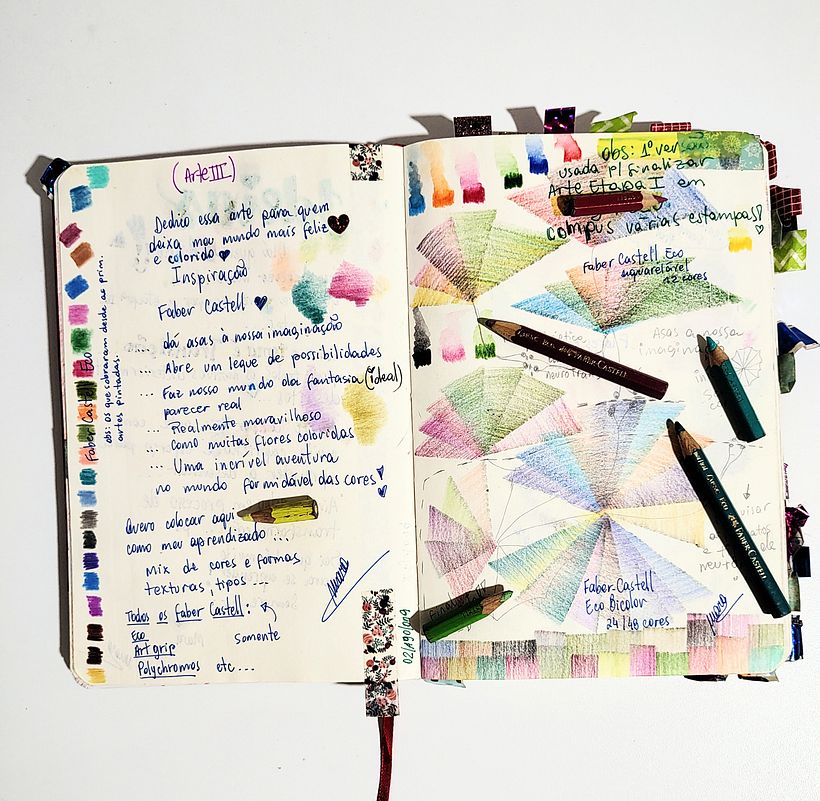 (Arte III)
Dedico essa arte para quem
deixa meu mundo mais feliz
e colorido
Inspiração
Faber Castell
... dá asas à nossa imaginação
... Abre um leque de possibilidades
... Faz nosso mundo da fantasia (ideal)
parecer real
... Realmente maravilhoso
... como muitas flores coloridas
... Uma incrível aventura
no mundo formidável das cores
Quero colocar aqui
como meu aprendizado ...
Mix de cores e formas
texturas, tipos ...
Todos os Faber Castell:
Eco
Art grip
Polychromos etc...
Somente
Faber Castell Eco
obs: os que sobraram desde as prim.
artes pintadas.
obs: 1º versão
usada p/ finalizar
Arte Etapa I em
compus várias estampas!
Faber Castell Eco
aquarelável
12 cores
Asas a nossa
FABER CASTELL
FABER CASTELL
Faber-Castell
Eco Bicolor
24/48 cores